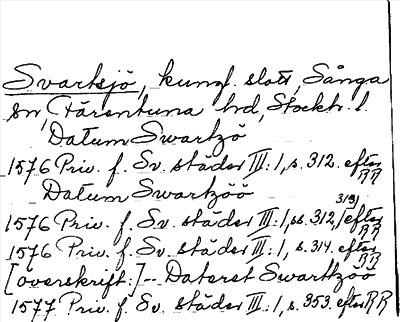 Svartsjö, kungl. slott, Sånga
sn, Färentuna hd, Stockh. l.
Datum Swartzö
1576 Priv. f. Sv. städer III:1, s. 312. efter RR
Datum Swartzöö
1576 Priv. f. Sv. städer III:1, ss. 312, 313, efter RR
1576 Priv. f. Sv. städer III:1, s. 314. efter RR
[överskrift:] -- Dateret Swarttzöö
1577 Priv. f. Sv. städer III:1, s. 353. efter RR